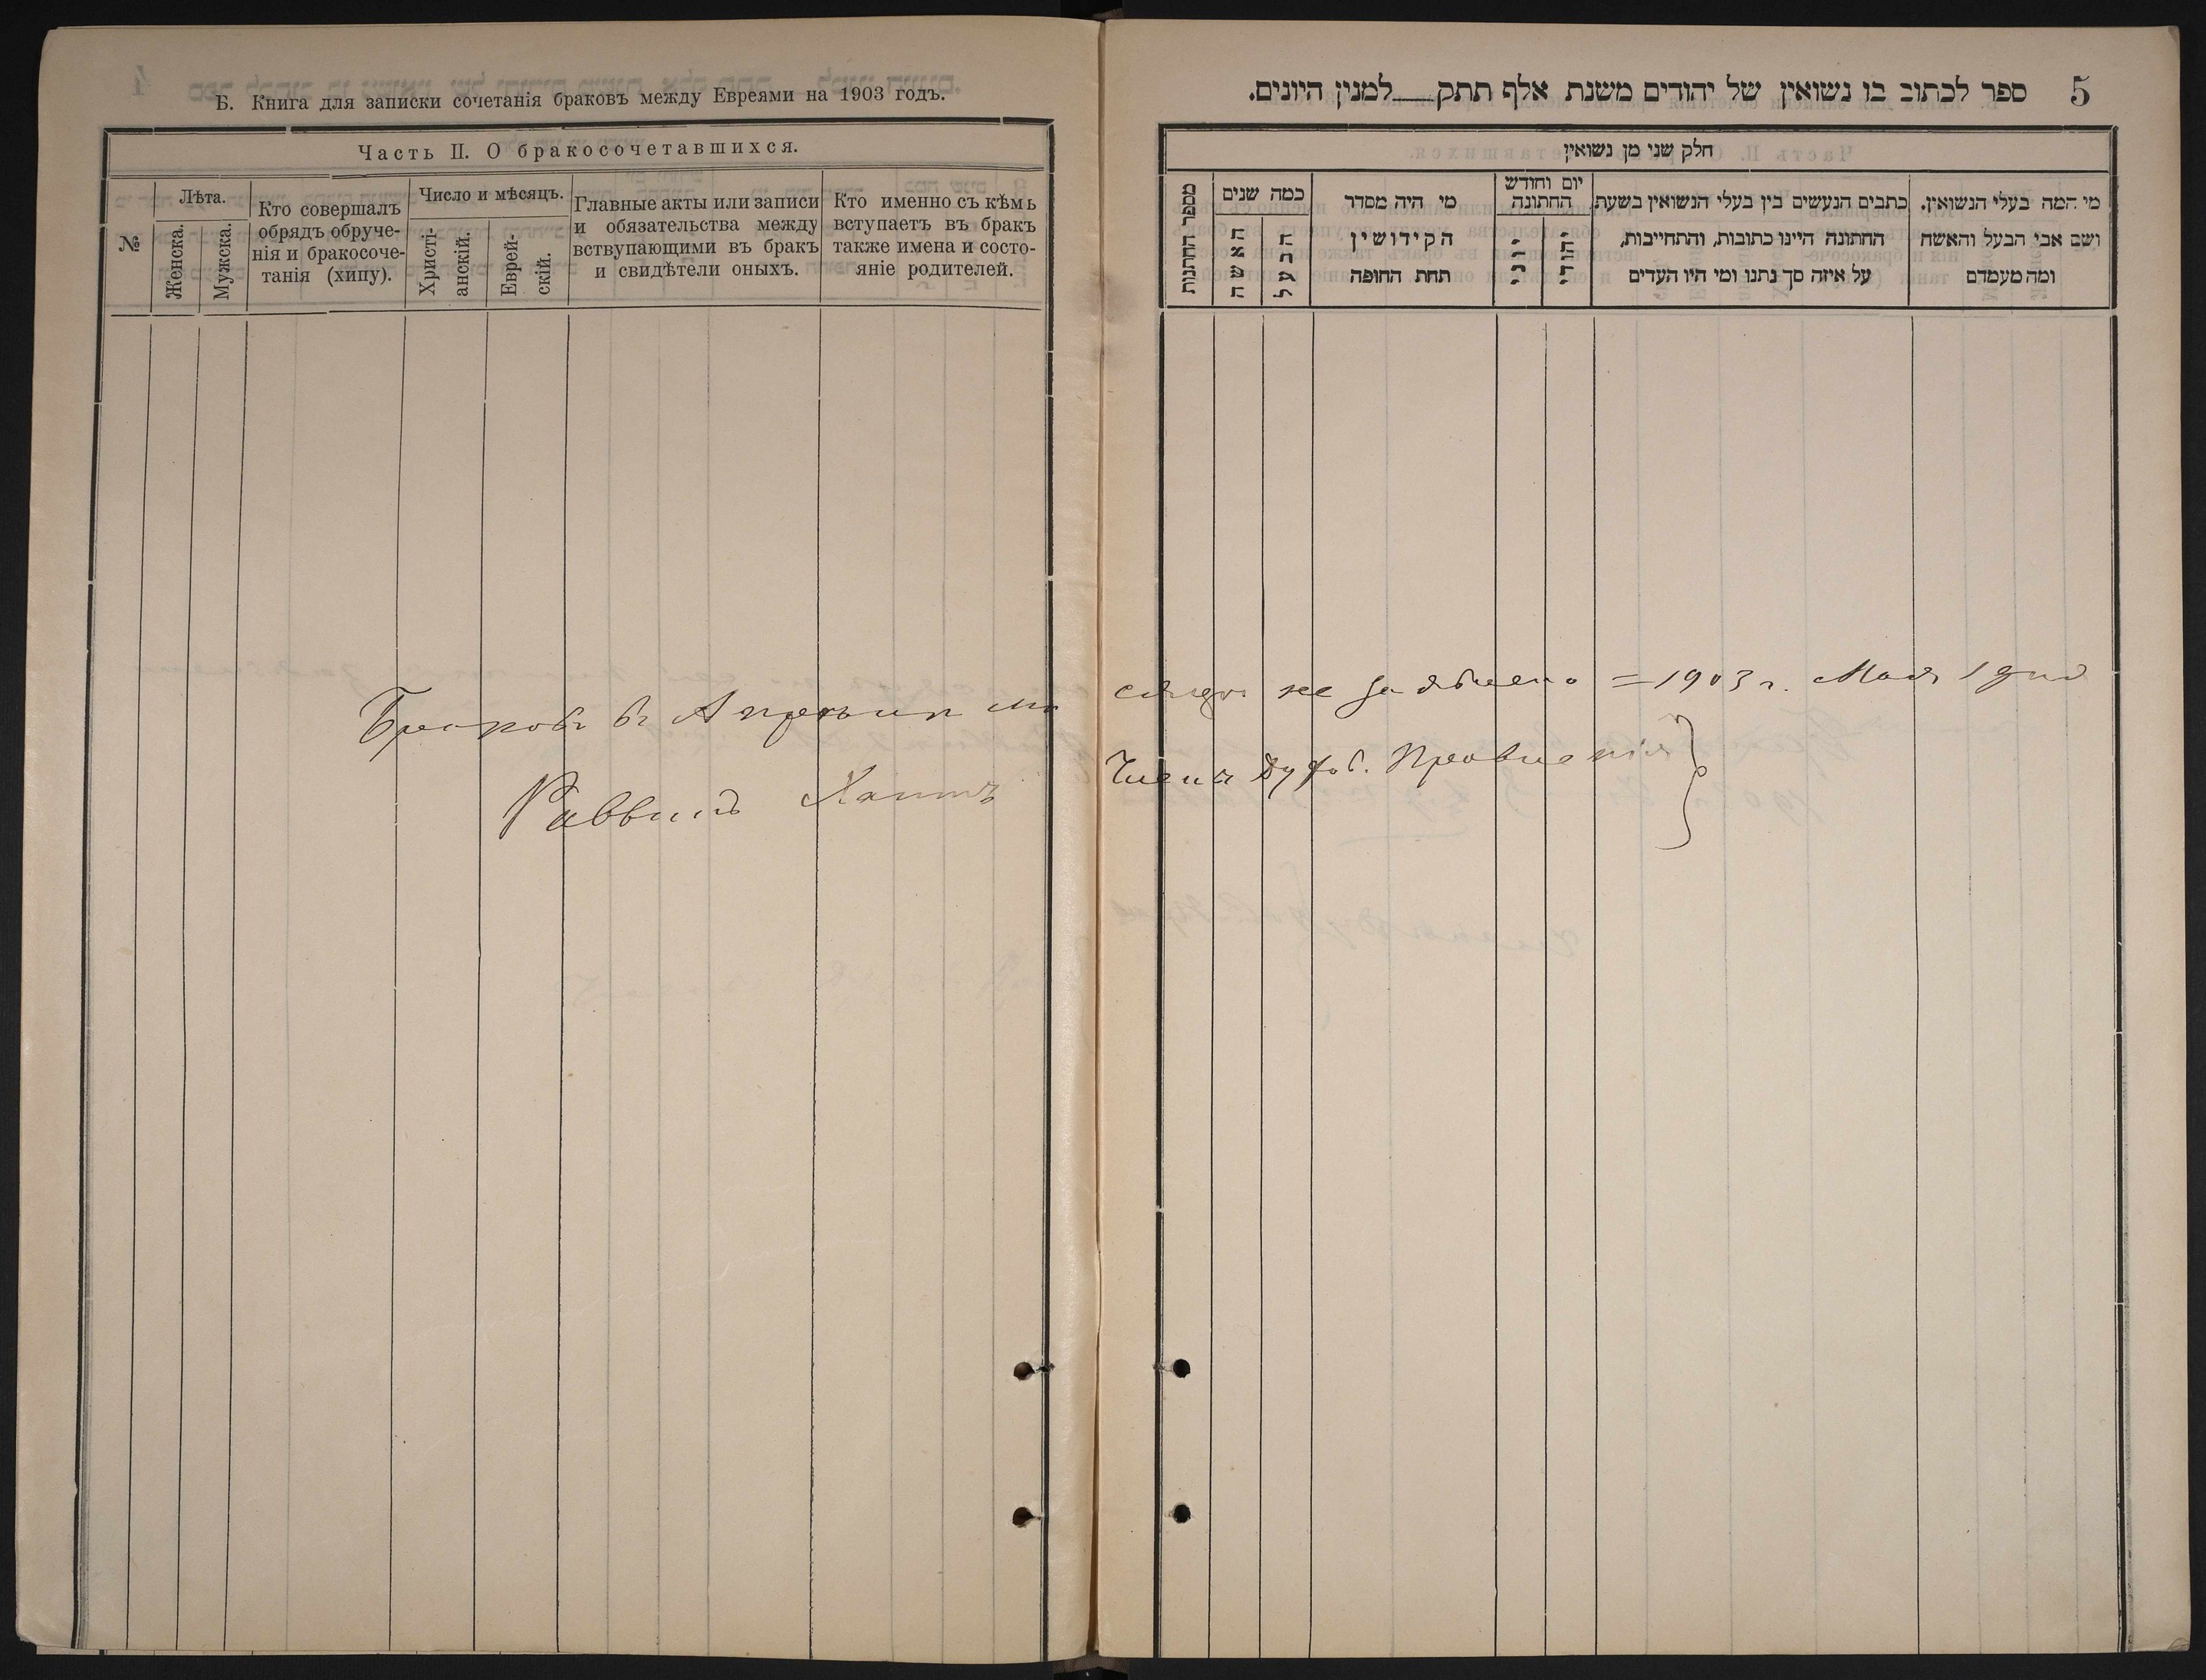 Б. Книга для записки сочетанія браковъ между Евреями на 1903 годъ.
Часть II. О бракосочетавшихся.
№
Лѣта.
Женска.
Мужска.
Кто совершалъ
обрядъ обруче-
нія и бракосоче-
танія (хипу).
Число и мѣсяцъ.
Христі-
анскій.
Еврей-
скій.
Главные акты или записи
и обязательства между
вствупающими въ бракъ
и свидѣтели оныхъ.
Кто именно съ кѣмъ
вступаетъ въ бракъ
также имена и состо-
яніе родителей.
5
ספר לכתוב בו נשואין של יהודים משנת אלף תתק למנין היונים.
חלק שני מן נשואין
מספר החתנות
כמה שנים
האשה
הבעל
מי היה מסדר
הקידושין
תחת החופה
יום וחודש
החתונה
יהודי
כתבים הנעשים בין בעלי הנשואין בשעת
החתונה היינו כתובות, והתחייבות,
על איזה סך נתנו ומי היו העדים
מי המה בעלי הנשואין,
ושם אבי הבעל והאשה
ומה מעמדם
Браковъ въ Апрелѣ мѣсяцѣ не заявлено = 1903 г. Мая 1 дня
Раввинъ
Членъ Духов. Правленія }